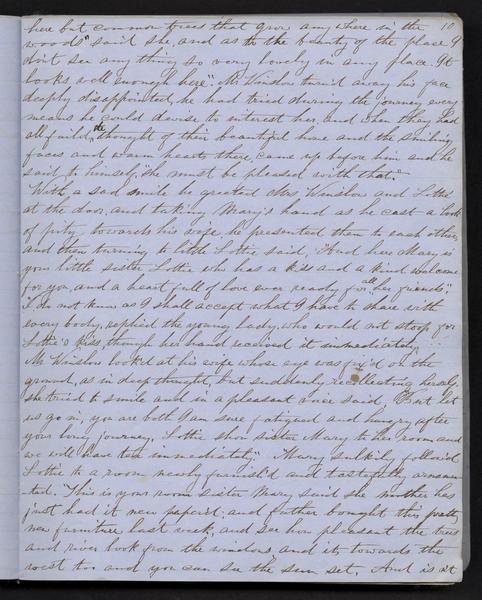 here but common trees that grow any where in the
woods" said she, and as to the beauty of the place I
don't see any thing so very lovely in any place. It
looks well enough here". Mr Winslow turn'd away his face
deeply disappointed, he had tried during the journey every
means he could devise to interest her, and when they had
all fail'd, the thought of their beautiful home and the smiling
faces and warm hearts there, came up before him and he
said to himself, "she must be pleased with that."
With a sad smile he greeted Mrs Winslow and Lottie
at the door, and taking Mary's hand as he cast a look
of pity towards his wife, he presented them to each other,
and then turning to little Lottie said, "And here Mary is
your little sister Lottie who has a kiss and a kind welcome
for you, and a heart full of love ever ready for all her friends."
"I do not know as I shall accept what I have to share with
every body, replied the young lady, who would not stoop for
Lottie's kiss, though her hand received it immediately.
Mr Winslow look'd at his wife whose eye was fix'd on the
ground, as in deep thought, but suddenly recollecting herself,
she tried to smile and in a pleasant voice said, "But let
us go in, you are both I am sure fatigued and hungry after
your long journey. Lottie show sister Mary to her room and
we will have tea immediately". Mary sulkily follow'd
Lottie to a room newly furnish'd and tastefully ornamen
-ted. "This is your room sister Mary said she mother has
just had it new paper'd, and father bought this pretty
new furniture last week, and see how pleasant the trees
and river look from the windows and its towards the
west too and you can see the sun set. And is it